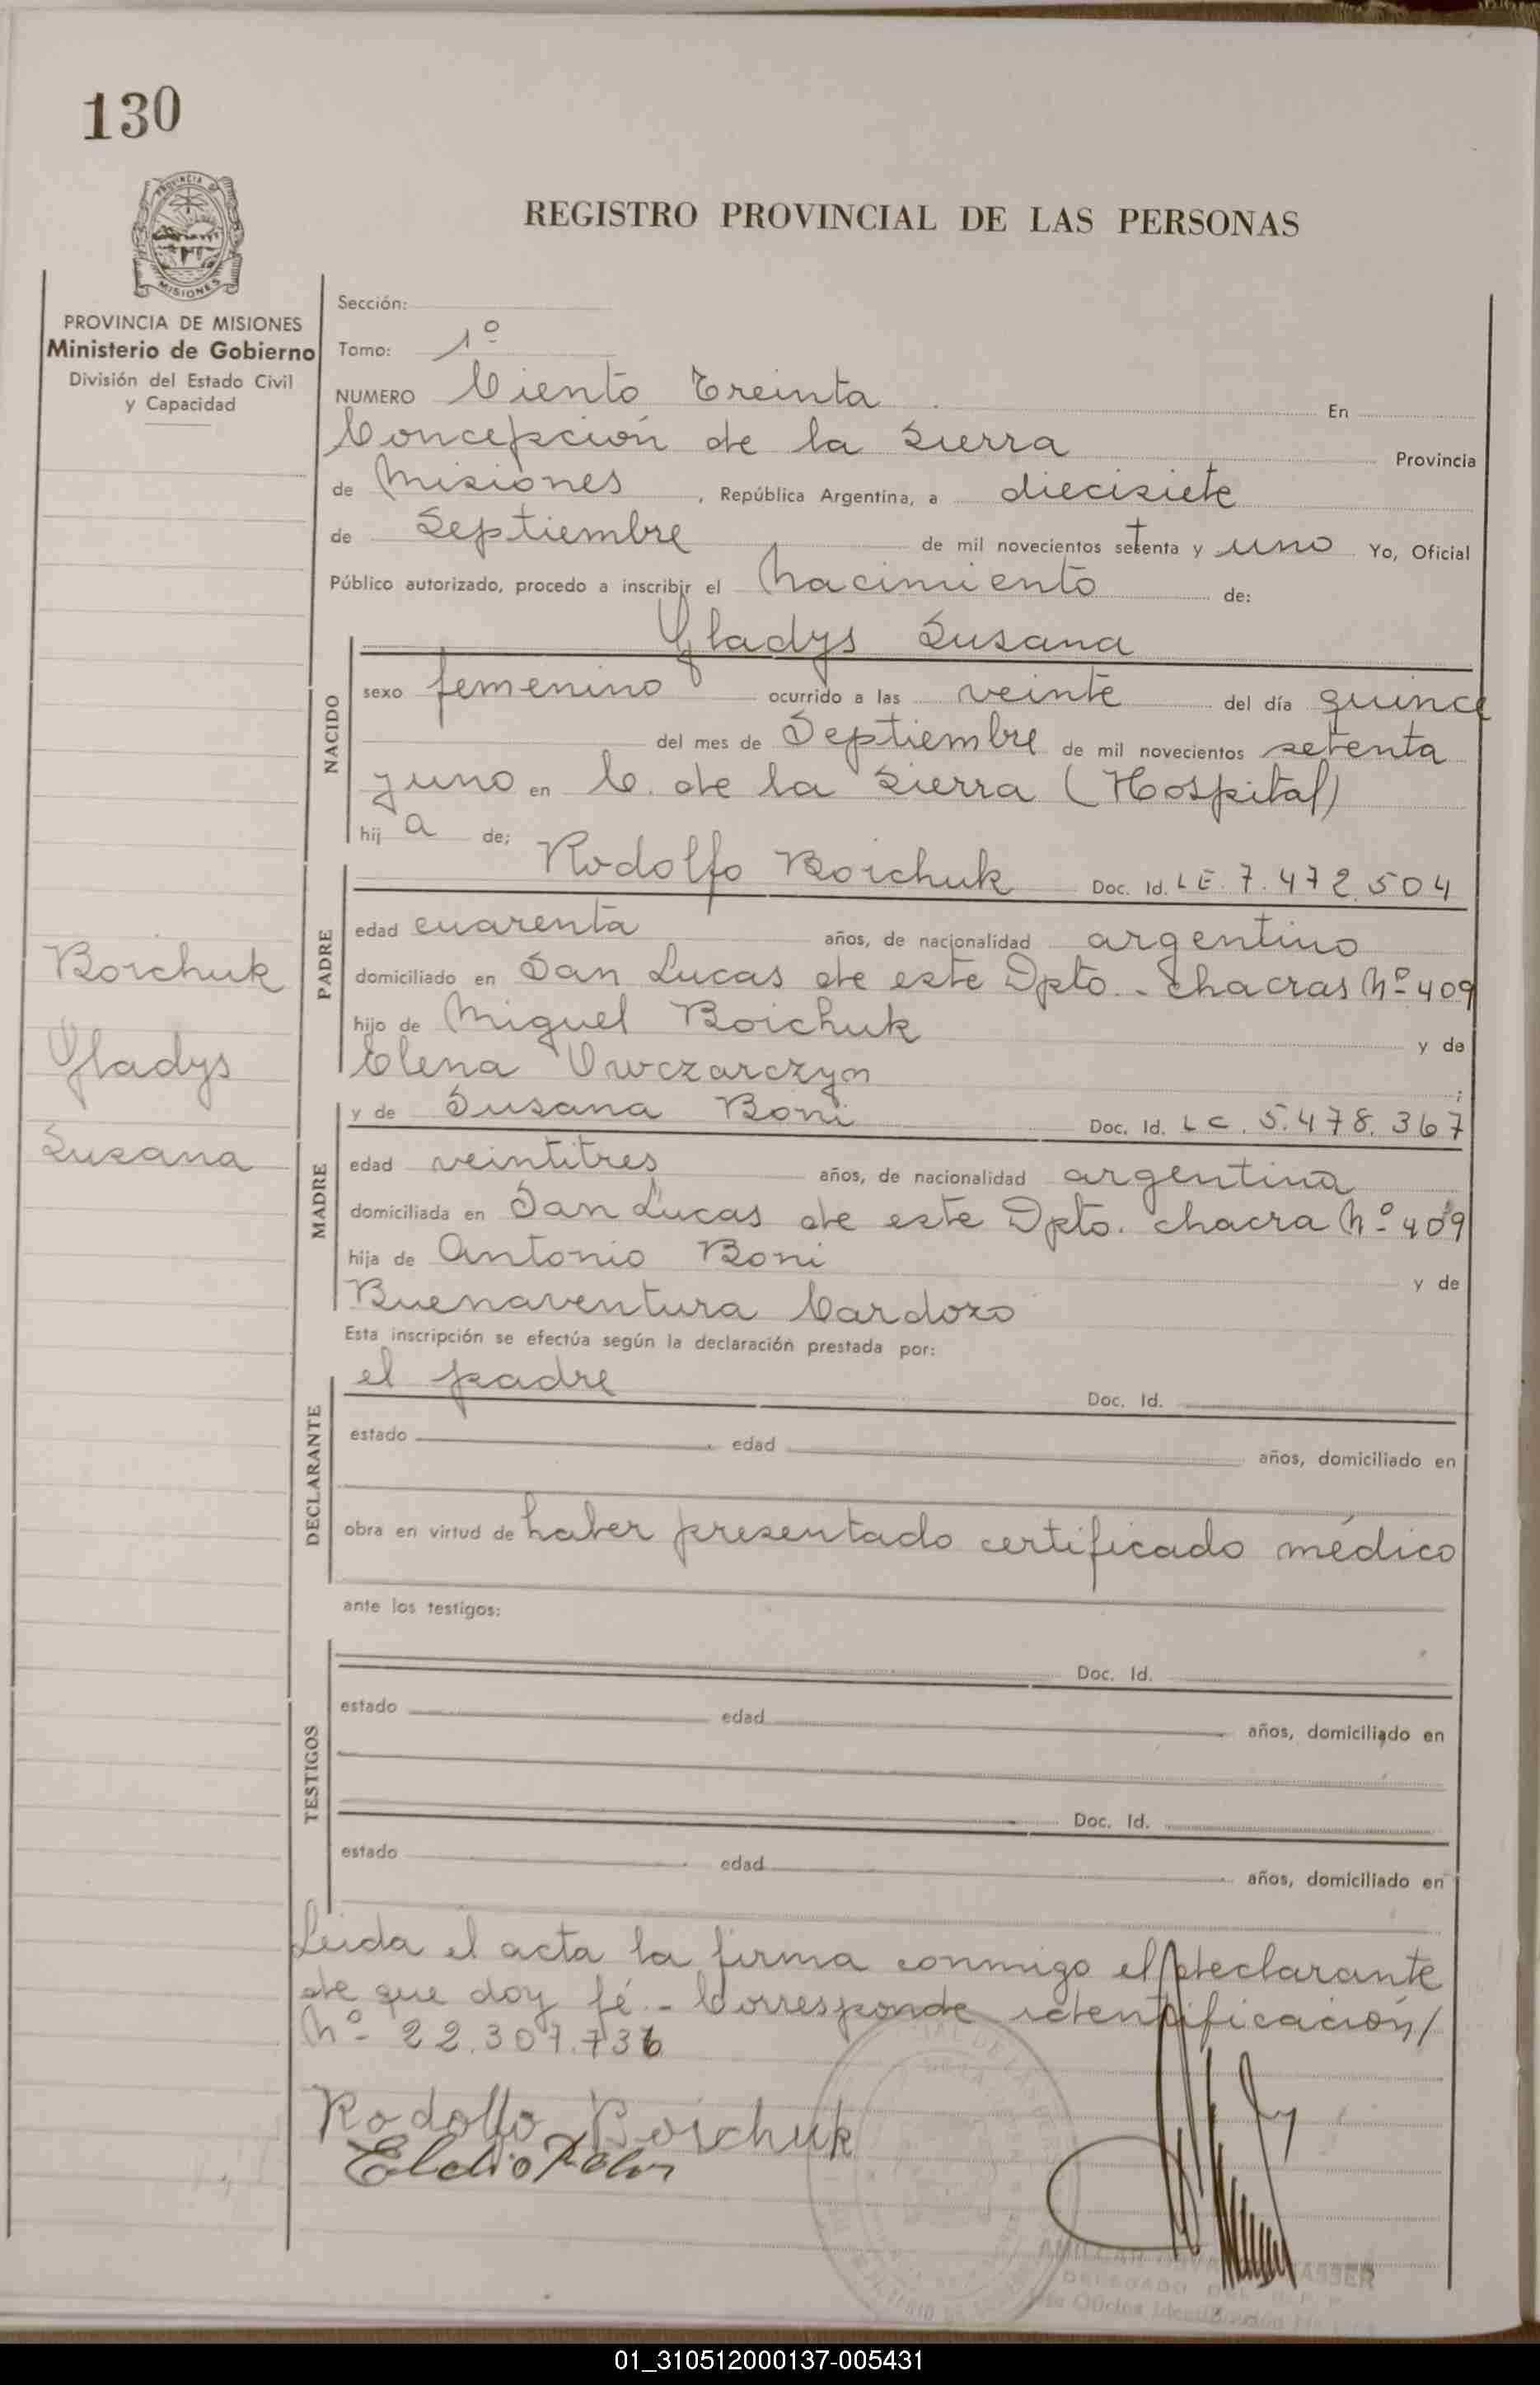 130
PROVINCIA DE
MISIONES
REGISTRO PROVINCIAL DE LAS PERSONAS
PROVINCIA DE MISIONES
Ministerio de Gobierno
División del Estado Civil
y Capacidad
Sección:
Tomo: 1º
NUMERO Ciento Treinta En
Concepción de la Sierra Provincia
de Misiones, República Argentina, a diecisiete
de Septiembre de mil novecientos setenta y uno Yo, Oficial
Público autorizado, procedo a inscribir el Nacimiento de:
Gladys Susana
NACIDO
sexo femenino ocurrido a las veinte del día quince
del mes de Septiembre de mil novecientos setenta
y uno en C. de la Sierra (Hospital)
hij a de;
PADRE
Rodolfo Boichuk Doc. Id. LE. 7.472.504
edad cuarenta años, de nacionalidad argentino
domiciliado en San Lucas de este Dpto. - chacras Nº 409
hijo de Miguel Boichuk y de
Elena Owczarczyn ;
Boichuk
Gladys
Susana
MADRE
y de Susana Boni Doc. Id. LC. 5.478.367
edad veintitres años, de nacionalidad argentina
domiciliada en San Lucas de este Dpto. chacra Nº 409
hija de Antonio Boni y de
Buenaventura Cardozo
Esta inscripción se efectúa según la declaración prestada por:
DECLARANTE
el padre Doc. Id.
estado edad años, domiciliado en
obra en virtud de haber presentado certificado médico
ante los testigos:
TESTIGOS
Doc. Id.
estado edad años, domiciliado en
Doc. Id.
estado edad años, domiciliado en
Leida el acta la firma conmigo el declarante
de que doy fé. - Corresponde identificación/
Nº 22.307.736
Rodolfo Boichuk
Eldio
DELEGADO DEL
Oficina Identificación
01_310512000137-005431